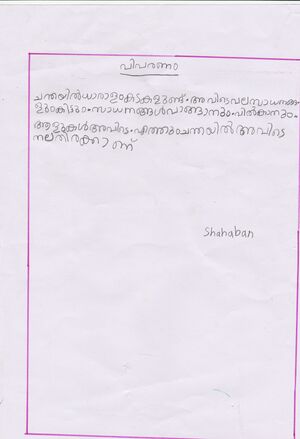 വിവരണം
ചന്തയിൽധാരാളംകടകളുണ്ട്. അവിടെപലസാധനങ്ങ
ളുംകിട്ടും. സാധനങ്ങൾവാങ്ങാനും. വിൽകാനും.
ആളുകൾഅവിടെ. എത്തുംചന്തയിൽഅവിടെ
നലതിരക്കാണ്
Shahaban